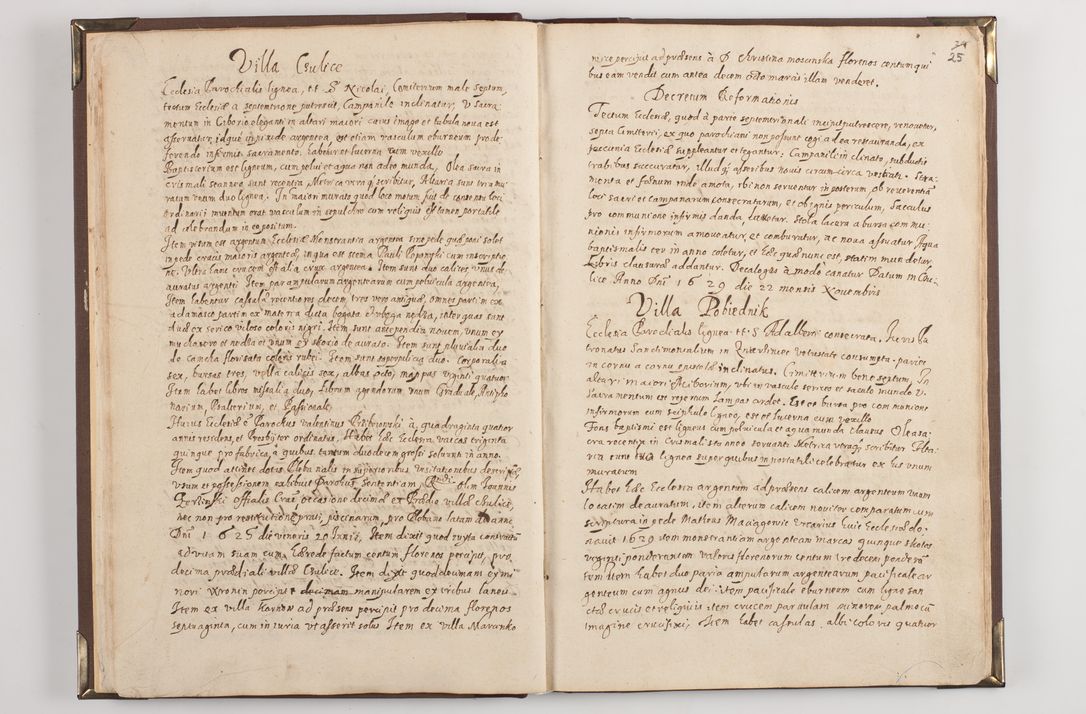 Villa Czulice
Ecclesia Parochialis lignea, tt. S. Nicolai, Cimiterium male septum,
tectum Ecclesiæ a septentrione putrescit, Campanile inclinatur, V. Sacra-
mentum in Ciborio eleganti in altari maiori cuius imago et tabula noua est
asseruatur idque in pixide argentea, est etiam vasculum eburneum pro de-
ferendo infirmis sacramento. habetur et lucerna cum vexillo
Baptisterium est ligneum, cum pelui et aqua non adeo munda, Olea sacra in
crismali stanneo sunt recentia, Metrica vera scribitur, Altaria sunt tria mu-
ratum vnum duo lignea. In maiori murato quod loco motum fuit de consensu loci
ordinarii inuentum erat vasculum in sepulchro cum reliquiis est tamen portatile
ad celebrandum in eo positum.
Item visum est argentum Ecclesiæ Monstrantia argentea sine pede quæ poni solet
in pede crucis maioris argenteæ, in qua est stema Pauli Poponski cum inscriptio-
ne. Vltra hanc crucem est alia crux argentea. Item sunt duo calices vnus de-
auratus argentei Item par ampularum argentearum cum peluicula argentea,
Item habentur casulæ recentiores decem, tres vero antiquæ, omnes partim ex
adamasco partim ex materia dicta bogata et wloga nedza, inter quas sunt
duæ ex serico villoso coloris nigri. Item sunt antependia nouem, vnum ex
mu closoro et nedza et vnum ex skorio de aurato. Item sunt pluuialia duo
de camcha florisata coloris rubei. Item sunt superpellicia duo. Corporalia
sex, bursas tres, vella calicis sex, albas octo, mappas viginti quatuor
Item habet libros missalia duo, librum agendorum vnum Graduale, Antipho
narium, Psalterium, et Passionale.
Huius Ecclesiæ Parochus Valentinus Przibrowski à quadraginta quatuor
annis residens, et Presbiter ordinatus, Habet hæc Ecclesia vaccas triginta
quinque pro fabrica, à quibus tantum duodecim grossi soluunt in anno.
Item quod attinet dotis Plebanalis in superioribus visitationibus descriptæ,
vsum et possessionem exhibuit Parochus sententiam Rndi olim Joannis
Gorlinski Officialis Crac occasione decimæ ex Prædio villæ Czulice,
nec non pro restitutione prati, piscinarum, pro Plebano latam de anno
Dni 1625 die veneris 20 Junii. Item dixit quod iuxta contractum
ad vitam suam cum hærede factum centum florenos percipit, pro
decima prædiali villæ Czulice. Item dixit quod decimam ex mi-
nori Wronin percipit decimam manipularem ex tribus laneis
Item ex villa Karnow ad præsens percipit pro decima florenos
septuaginta, cum in curia vt asserit solus Item ex villa Maranko
34
25
nice percipit ad præsens à D Christina moscinska florenos centum qui
bus eam vendit cum antea decem octo marcis illam venderet.
Decretum Reformationis
Tectum Ecclesiæ, quod à parte septemtrionali incipit putrescere, renouetur,
septa Cimiterii, ex quo parochiani non possunt cogi ad ea restauranda, ex
pecunia Ecclesiæ suppleantur et tegantur. Campanili inclinato, subductis
trabibus succuratur, illudque asseribus nouis circum circa vestiatur. Stra-
menta et foenum inde amota, ibi non seruentur in posterum, ob reuerentia
loci sacri et campanarum consecratarum, et ob ignis periculum, Sacculus
pro communione infirmis danda, datetur. Stola lacera à bursa commu-
nionis infirmorum amoueatur, et comburatur, ac noua assuatur, Aqua
baptismalis ter in anno coletur, et hæc quæ nunc est, statim mundetur,
Libris clausuræ addantur. Decalogus à modo canatur Datum in Czu-
lice Anno Dni 1629 die 22 mensis Nouembris
Villa Pobiednik
Ecclesia Parochialis lignea tt. S Adalberti consecrata, Juris Pa
tronatus Sanctimonialium in Zwierzinec vetustate consumpta. paries
in cornu à cornu epistolæ inclinatus. Cimiterium bene septum, In
altari maiori ciborium, vbi in vasculo serreo et sacculo mundo V.
sacramentum est reiectum lampas ardet. Est et bursa pro communione
infirmorum cum sciphulo ligneo, est et lucerna cum vexillo
Fons baptismi est ligneus cum peluicula et aqua munda clausus Olea sa-
cra recentia in Crismali stanneo seruantur Metrica vtraque scribitur Alta-
ria tria lignea super quibus in portatili celebratur ex his vnum
muratum
Habet hæc Ecclesia argentum ad præsens calicem argenteum vnum
locatim deauratum, item alterum calicem nouiter comparatum cum
scriptura in pede Matheus Maiaggenit Vicarius huic Ecclesiæ do-
nauit 1629 item monstrantiam argenteam marcas quinque skotos
viginti ponderantem valoris florenorum centum tredecim ponderis
item item habet duo paria ampularum argentearum pacificale ar
genteum cum agnus dei item pacificale eburneum cum ligno san
ctæ crucis et reliquiis item crucem paruulam minorem palmo cu
imagine crucifixi, Item habet casulas albi coloris quatuor